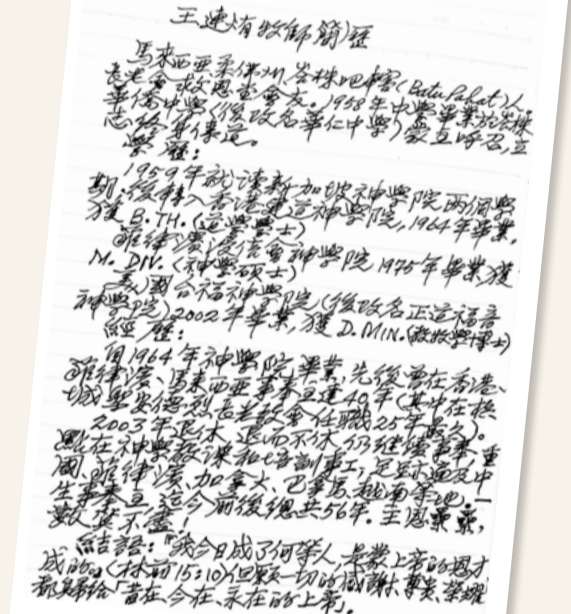 王建煒牧師簡歷
馬來西亞柔佛州峇株巴轄(Batu Pahat)人。
長老會救恩堂會友。1958年中學畢業於峇株
華僑中學(後改名華仁中學)蒙主呼召,立
志終身傳道。
學歷:
1959年就讀新加坡神學院兩個學
期.後轉入香港建道神學院,1964年畢業,
獲B.TH.(道學學士)
菲律濱浸信會神學院1975年畢業,獲
M. DIV.(神學碩士)
美國合福神學院(後改名正道福音
神學院)2002年畢業,獲D. MIN.(教牧學博士)
經歷:
自1964年神學院畢業,先後曾在香港、
菲律濱、馬來西亞事奉主達40年(其中在檳
城聖安德烈長老教會任職25年最久)。
2003年退休,退而不休,仍繼續事奉,重
點在神學教課和培訓事工,足跡遍及中
國、菲律濱、加拿大、巴拿馬、越南等地.一
生事奉主,迄今前後總共56年.主恩纍纍,
數算不盡!
結語:"我今日成了何等人,是蒙上帝的恩才
成的。(林前15:10)但願一切的感謝、尊貴、榮耀
都歸給「昔在、今在、永在的上帝」。